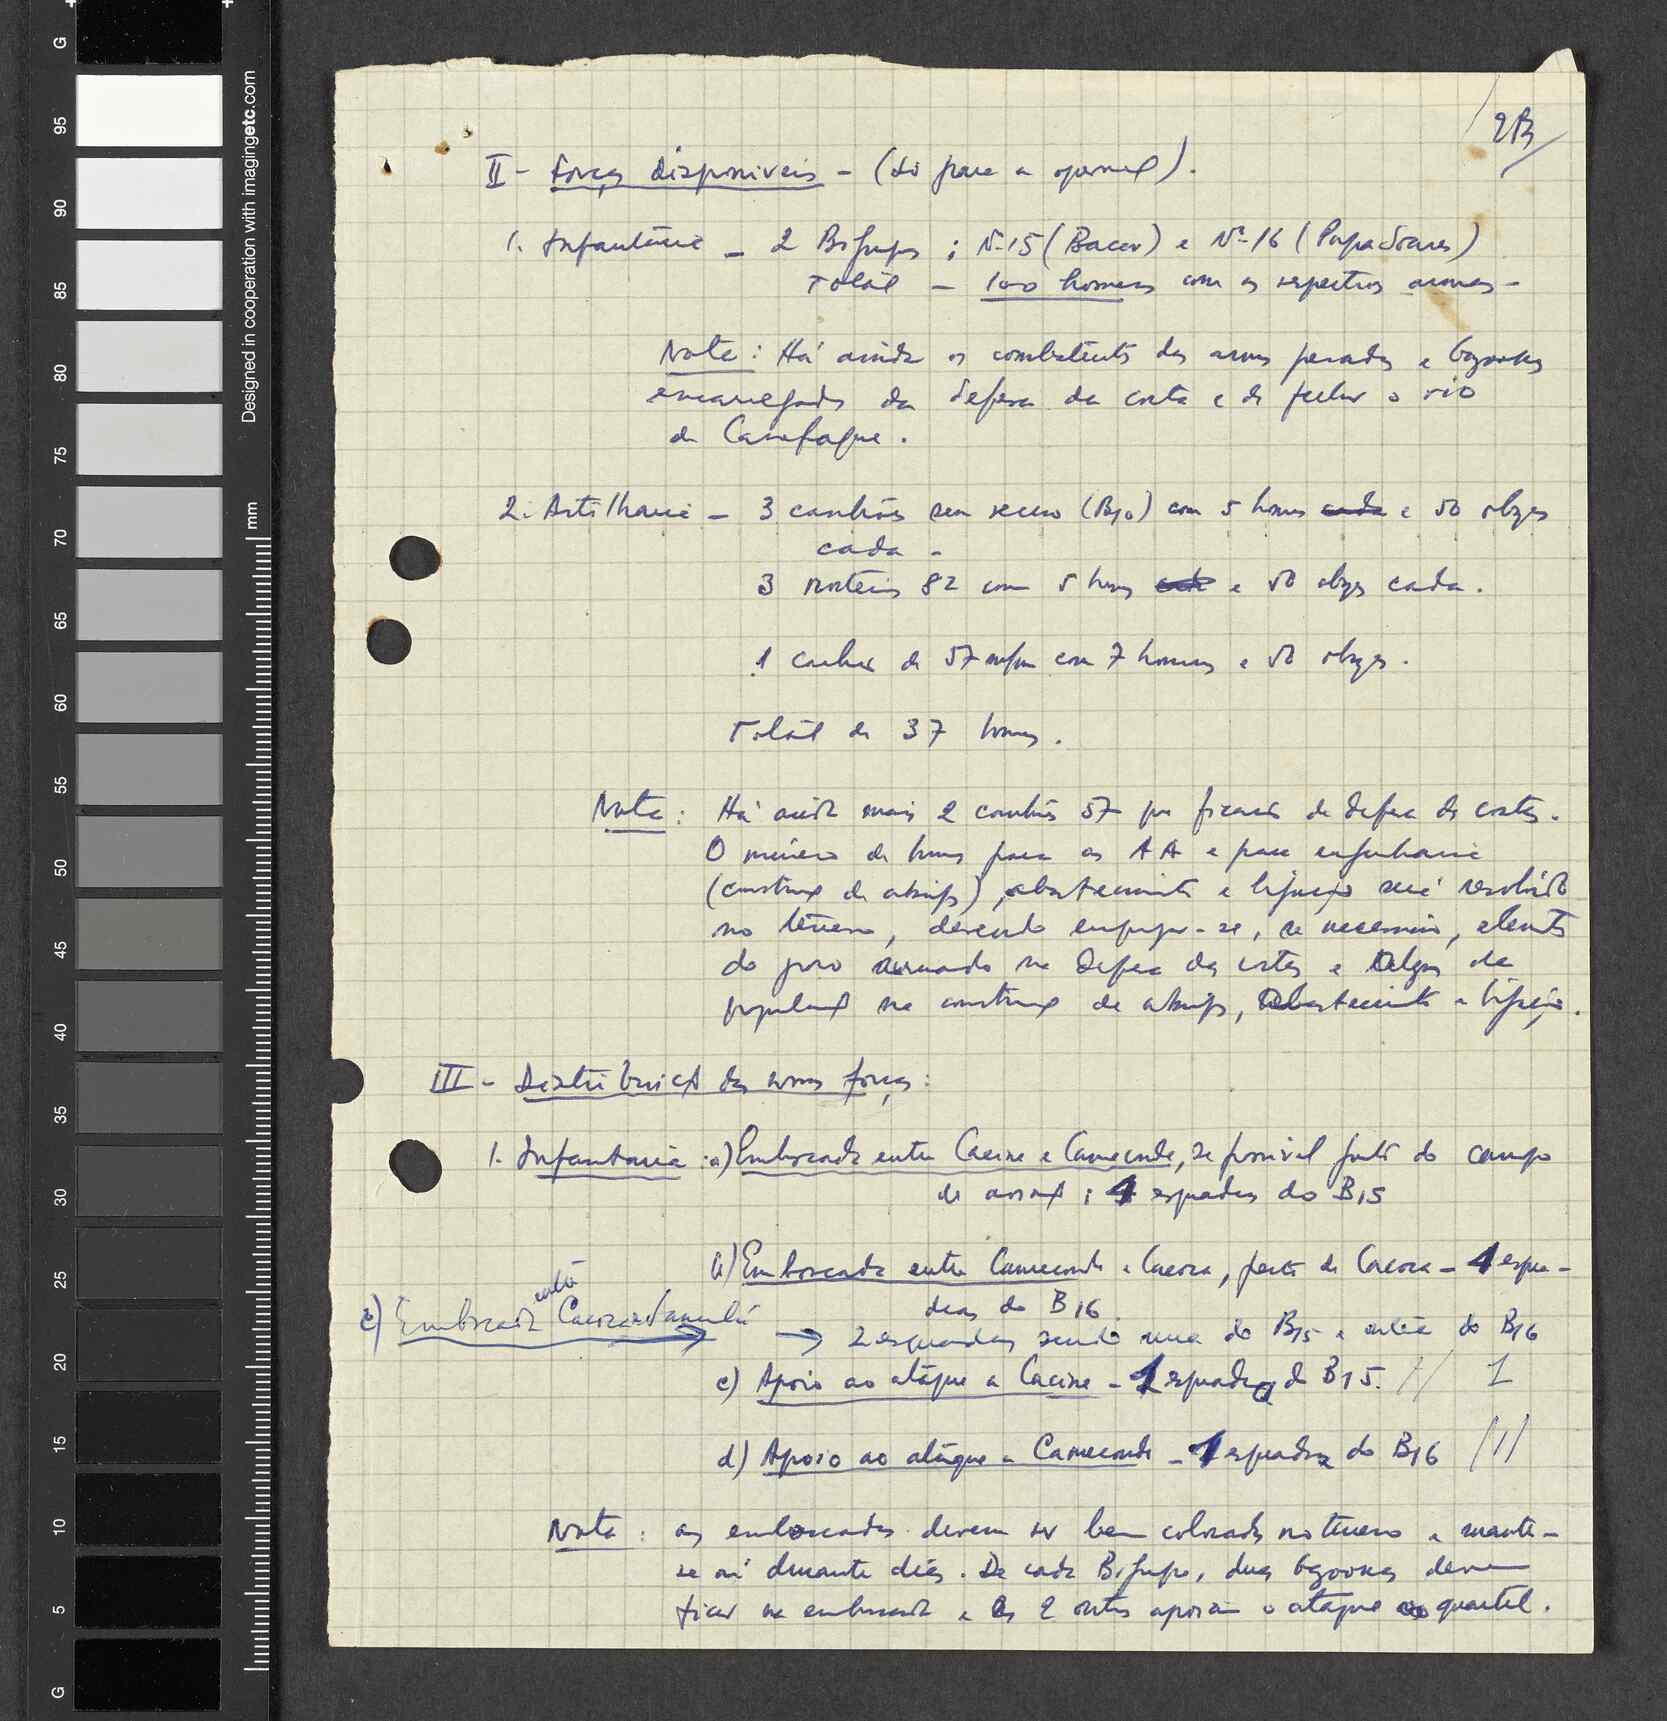 2B
II - Forças disponíveis - (só para a operação).
1. Infantaria - 2 Bigrupos ; Nº 15 (Bacar) e Nº 16 (Pupa Soares)
Total - 100 homens com as respectivas armas -
Nota : Há ainda os combatentes das armas pesadas e bazookas
encarregados da defesa da costa e de fechar o rio
de Canefaque.
2. Artilharia - 3 canhões sem recuo (B10) com 5 homens cada e 50 obuzes
cada -
3 morteiros 82 com 5 homens cada e 50 obuzes cada.
1 canhão de 57 m/m com 7 homens e 50 obuzes.
Total de 37 homens.
Nota : Há ainda mais 2 canhões 57 que ficarão de defesa da costa.
O número de homens para as AA e para engenharia
(construção de abrigos), abastecimento e ligação será resolvido
no terreno, devendo empregar-se, se necessário, elementos
do povo armado na defesa das costas e da
população na construção de abrigos, abastecimento e ligação.
III - Distribuição das nossas forças :
1. Infantaria : a) Emboscada entre Cacine e Cameconde, se possível junto do campo
de aviação ; 4 esquadras do B15
b) Emboscada entre Cameconde e Cacoca, perto de Cacoca - 4 esqua-
dras do B16
e) Emboscada entre Cacoca e Sanconhá
→ 2 esquadras sendo uma do B15 e outra do B16
c) Apoio ao ataque a Cacine - 1 esquadra do B15. // 1
d) Apoio ao ataque a Cameconde - 1 esquadra do B16 /1/
Nota : as emboscadas devem ser bem colocadas no terreno e mante-
se aí durante dias. De cada Bigrupo, duas bazookas devem
ficar na emboscada e as 2 outras apoiam o ataque ao quartel.